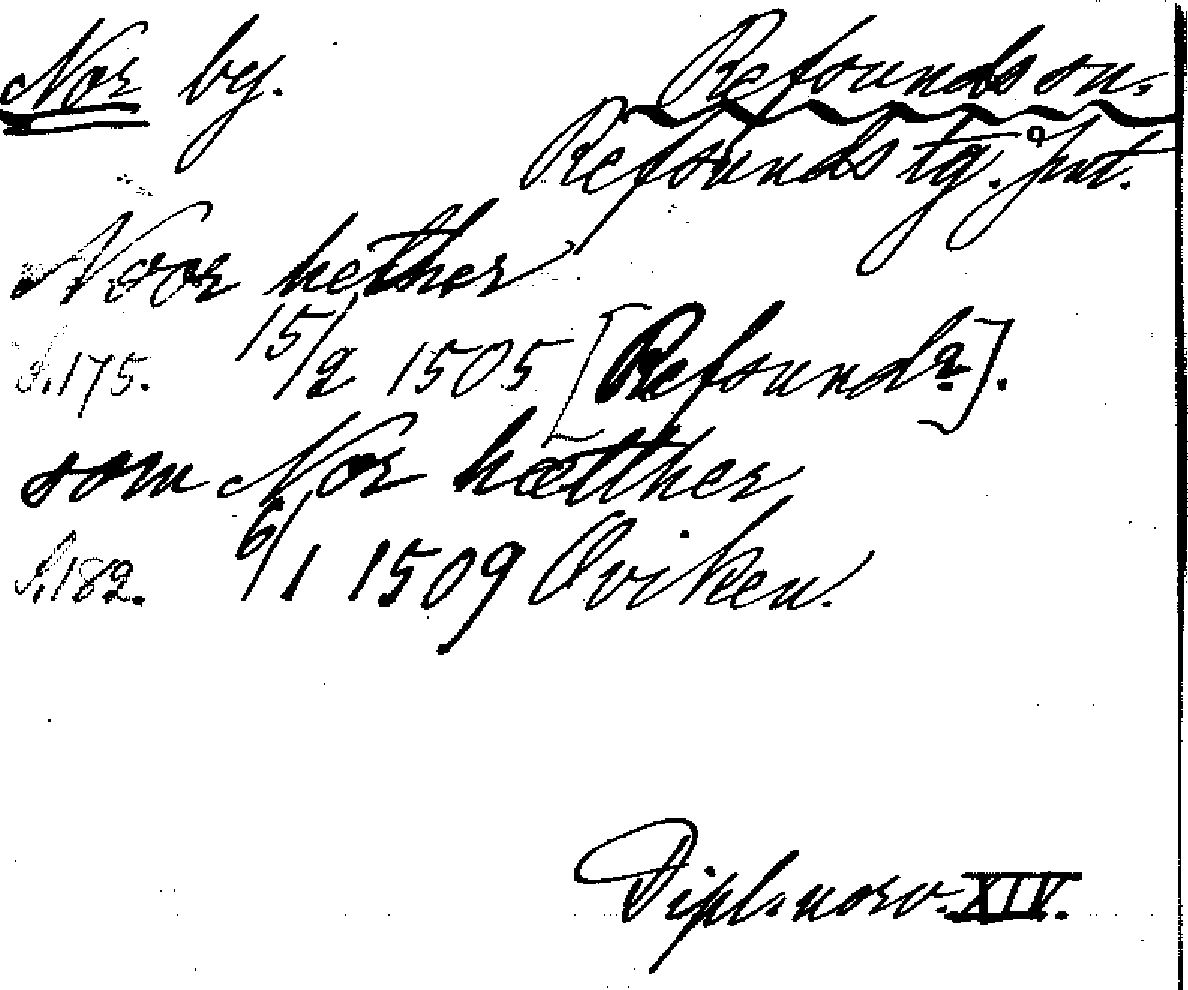 Nor by. Refsundsson.
Refsunds tg. Jmt.
Noor hether
S.175. 15/2 1505 [Refsund?].
som Nor hætther
S.182. 6/1 1509 Oviken.
Dipl. norv. XIV.